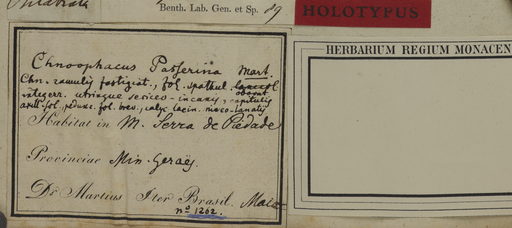 Benth. Lab. Gen. et Sp. 89
HOLOTYPUS
HERBARIUM REGIUM MONACEN
Chnoophacus Passerina Mart.
Chn. ramulis fastigiat., fol. spathul. lanceol
obovat
integerr. utrinque sericeo-incanis, capitulis
axill. fol., pedunc. fol. brev., calyc. lacin. niveo-lanatis
Habitat in M. Serra de Piedade
Provinciae Min. Geraës.
Dr. Martius Iter Brasil. Maio
no 1262.